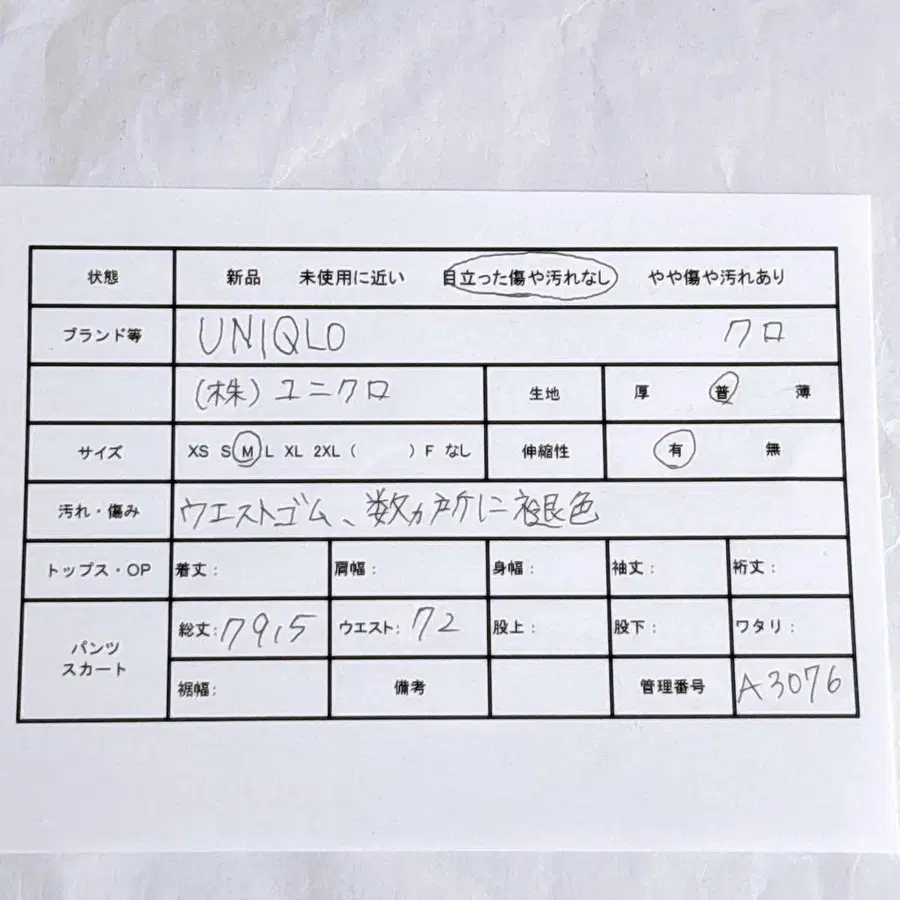 状態 新品 未使用に近い 目立った傷や汚れなし やや傷や汚れあり
ブランド等 UNIQLO クロ
(株)ユニクロ 生地 厚 普 薄
サイズ XS S M L XL 2XL ( ) F なし 伸縮性 有 無
汚れ・傷み ウエストゴム、数ヵ所に褪色
トップス・OP 着丈: 肩幅: 身幅: 袖丈: 裄丈:
パンツ
スカート
総丈:79,5 ウエスト:72 股上: 股下: ワタリ:
裾幅: 備考 管理番号 A3076